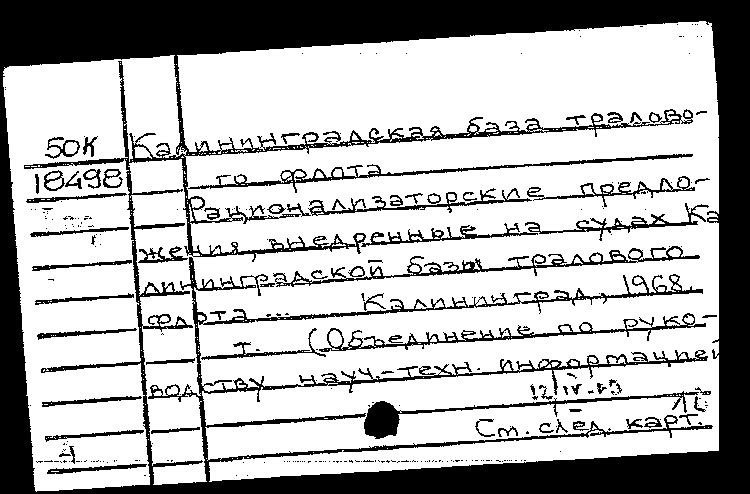 50К Калининградская база тралово-
18498 го флота.
Рационализаторские предло-
жения, внедренные на судах Ка
лининградской базы тралового
флота ... Калининград, 1968.
т. (Объединение по руко-
водству науч.-техн. информацией
См. след. карт.